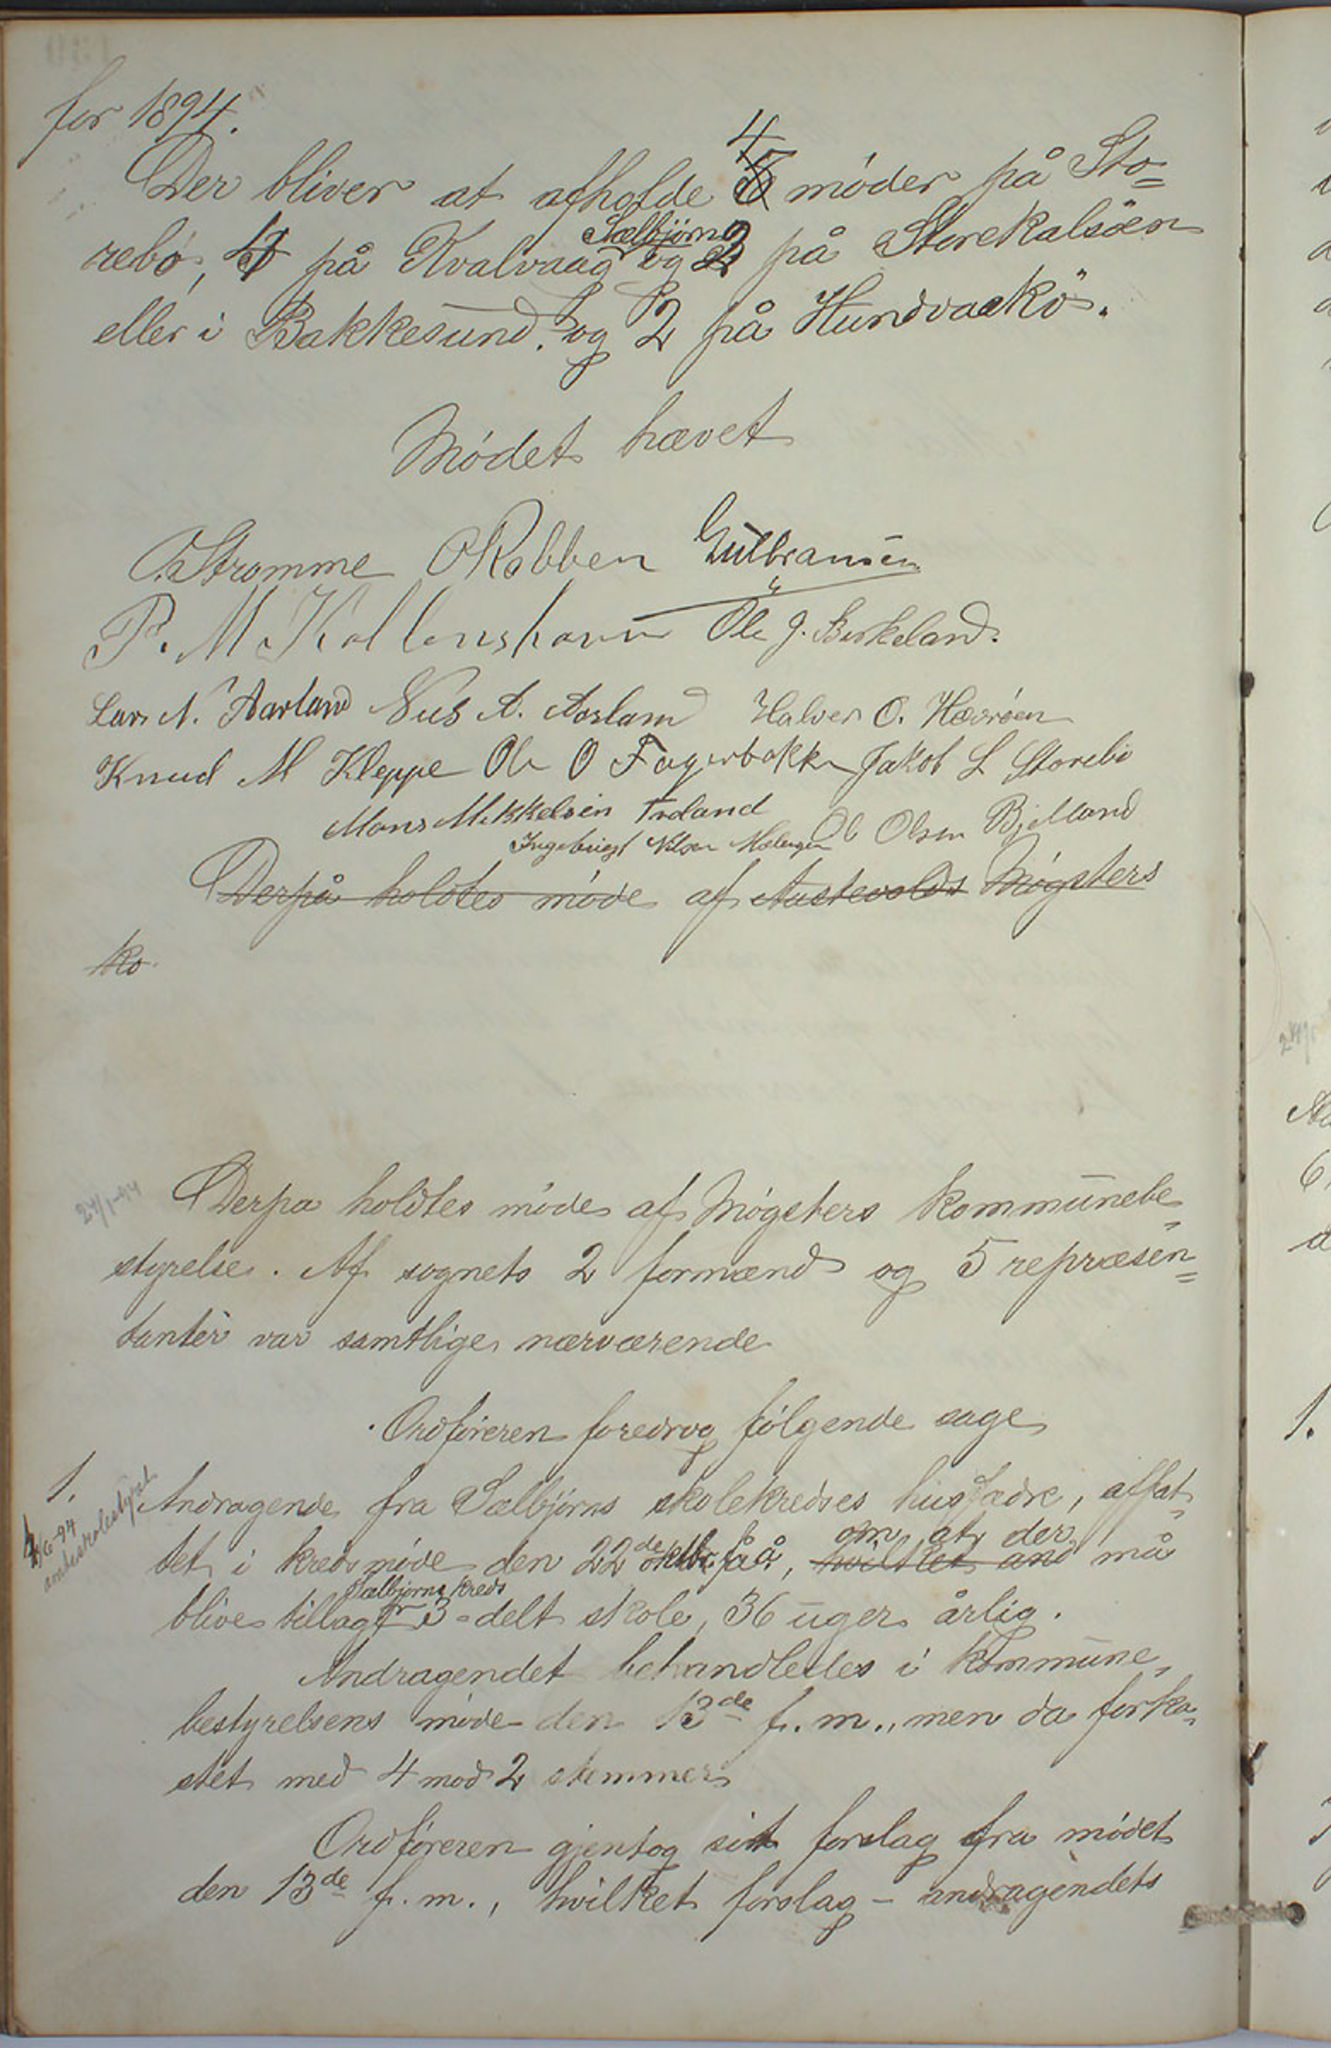 for 1894.
Der bliver at afholde 4 møder på Sto=
rebø, 1 på Kvalvaag Sælbjørn og 2 på Storekalsøen
eller i Bakkesund. og 2 på Hundvaakö.
Mødet hævet
O. Strømme O Rabben Gulbransen
P. M Kallenshavn Ole J. Birkeland.
Lars N. Aarland Nils A. Aarland Halver O. Hævrøen
Knud M Kleppe Ole O Fagerbakke Jakob L Storebö
Mons Mikkelsen Troland Ole Olsen Bjelland
Ingebrigt Nilsen
Derpå holdtes møde af Austevolds Møgsters
ko
24/1-94
Derpa holdtes møde af Møgsters kommunebe=
styrelse. Af sognets 2 formænd og 5 repræsen=
tanter var samtlige nærværende
Ordføreren foredrog følgende sage
1. Andragende fra Sælbjørns skolekredses husfædre, affat=
tet i kredsmøde den 22de oktbr. f å, hvilket and om at der må
blive tillagt Sælbjørns kreds 3-delt skole, 36 uger årlig.
4/6-94
amtsskolestyret
Andragendet behandledes i kommune=
bestyrelsens møde den 13de f. m., men da forka=
stet med 4 mod 2 stemmer
Ordføreren gjentog sit forslag fra mødet
den 13de f. m., hvilket forslag - andragendets